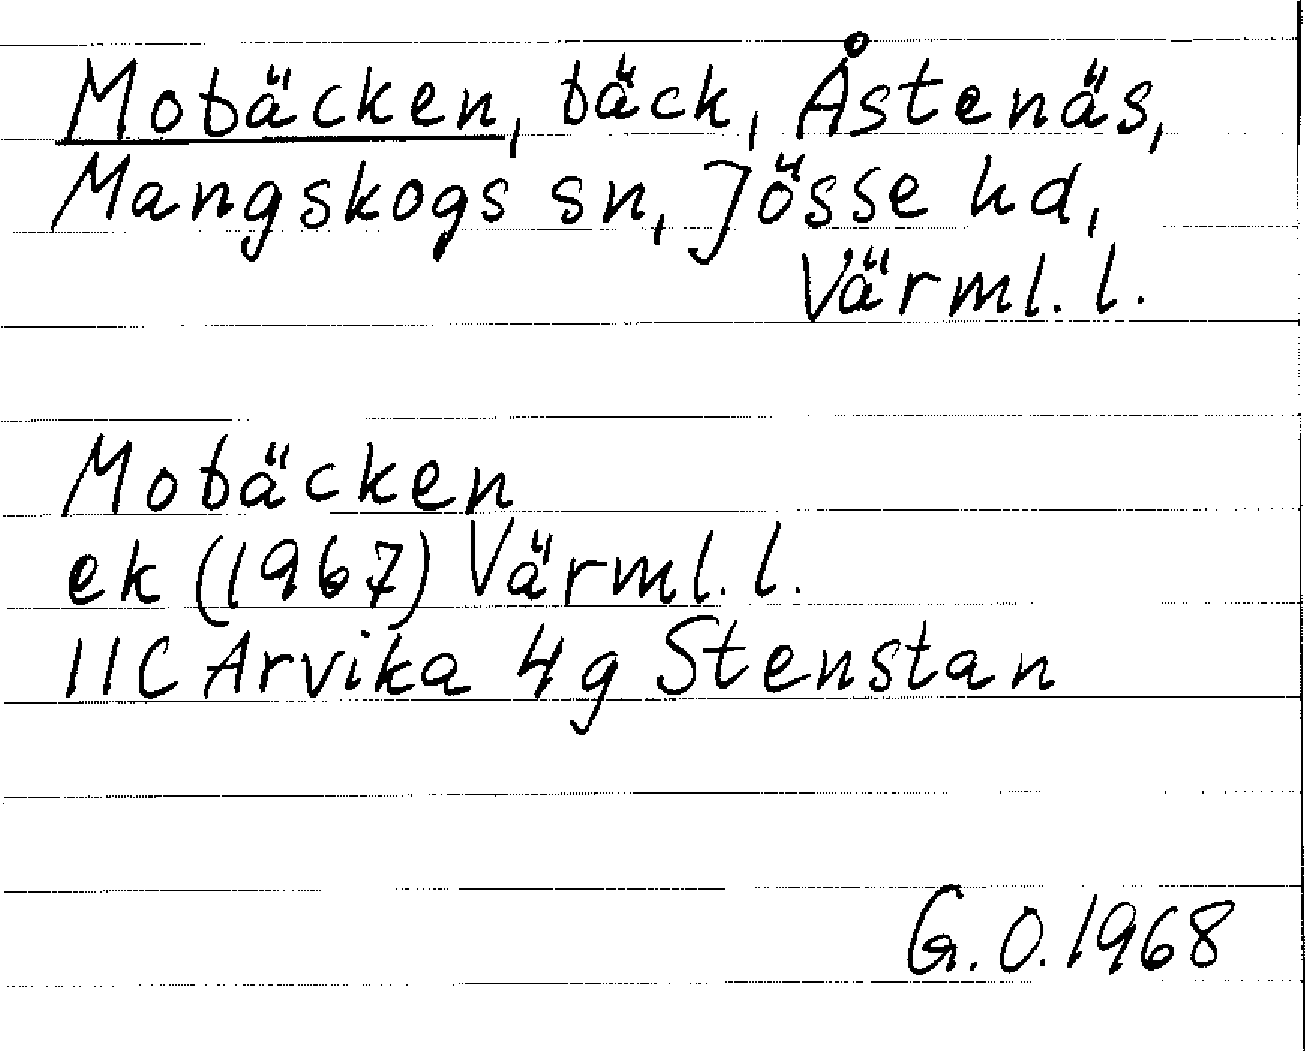 Mobäcken, bäck, Åstenäs,
Mangskogs sn, Jösse hd,
Värml. l.
Mobäcken
ek (1967) Värml. l.
11C Arvika 4g Stenstan
G.O. 1968